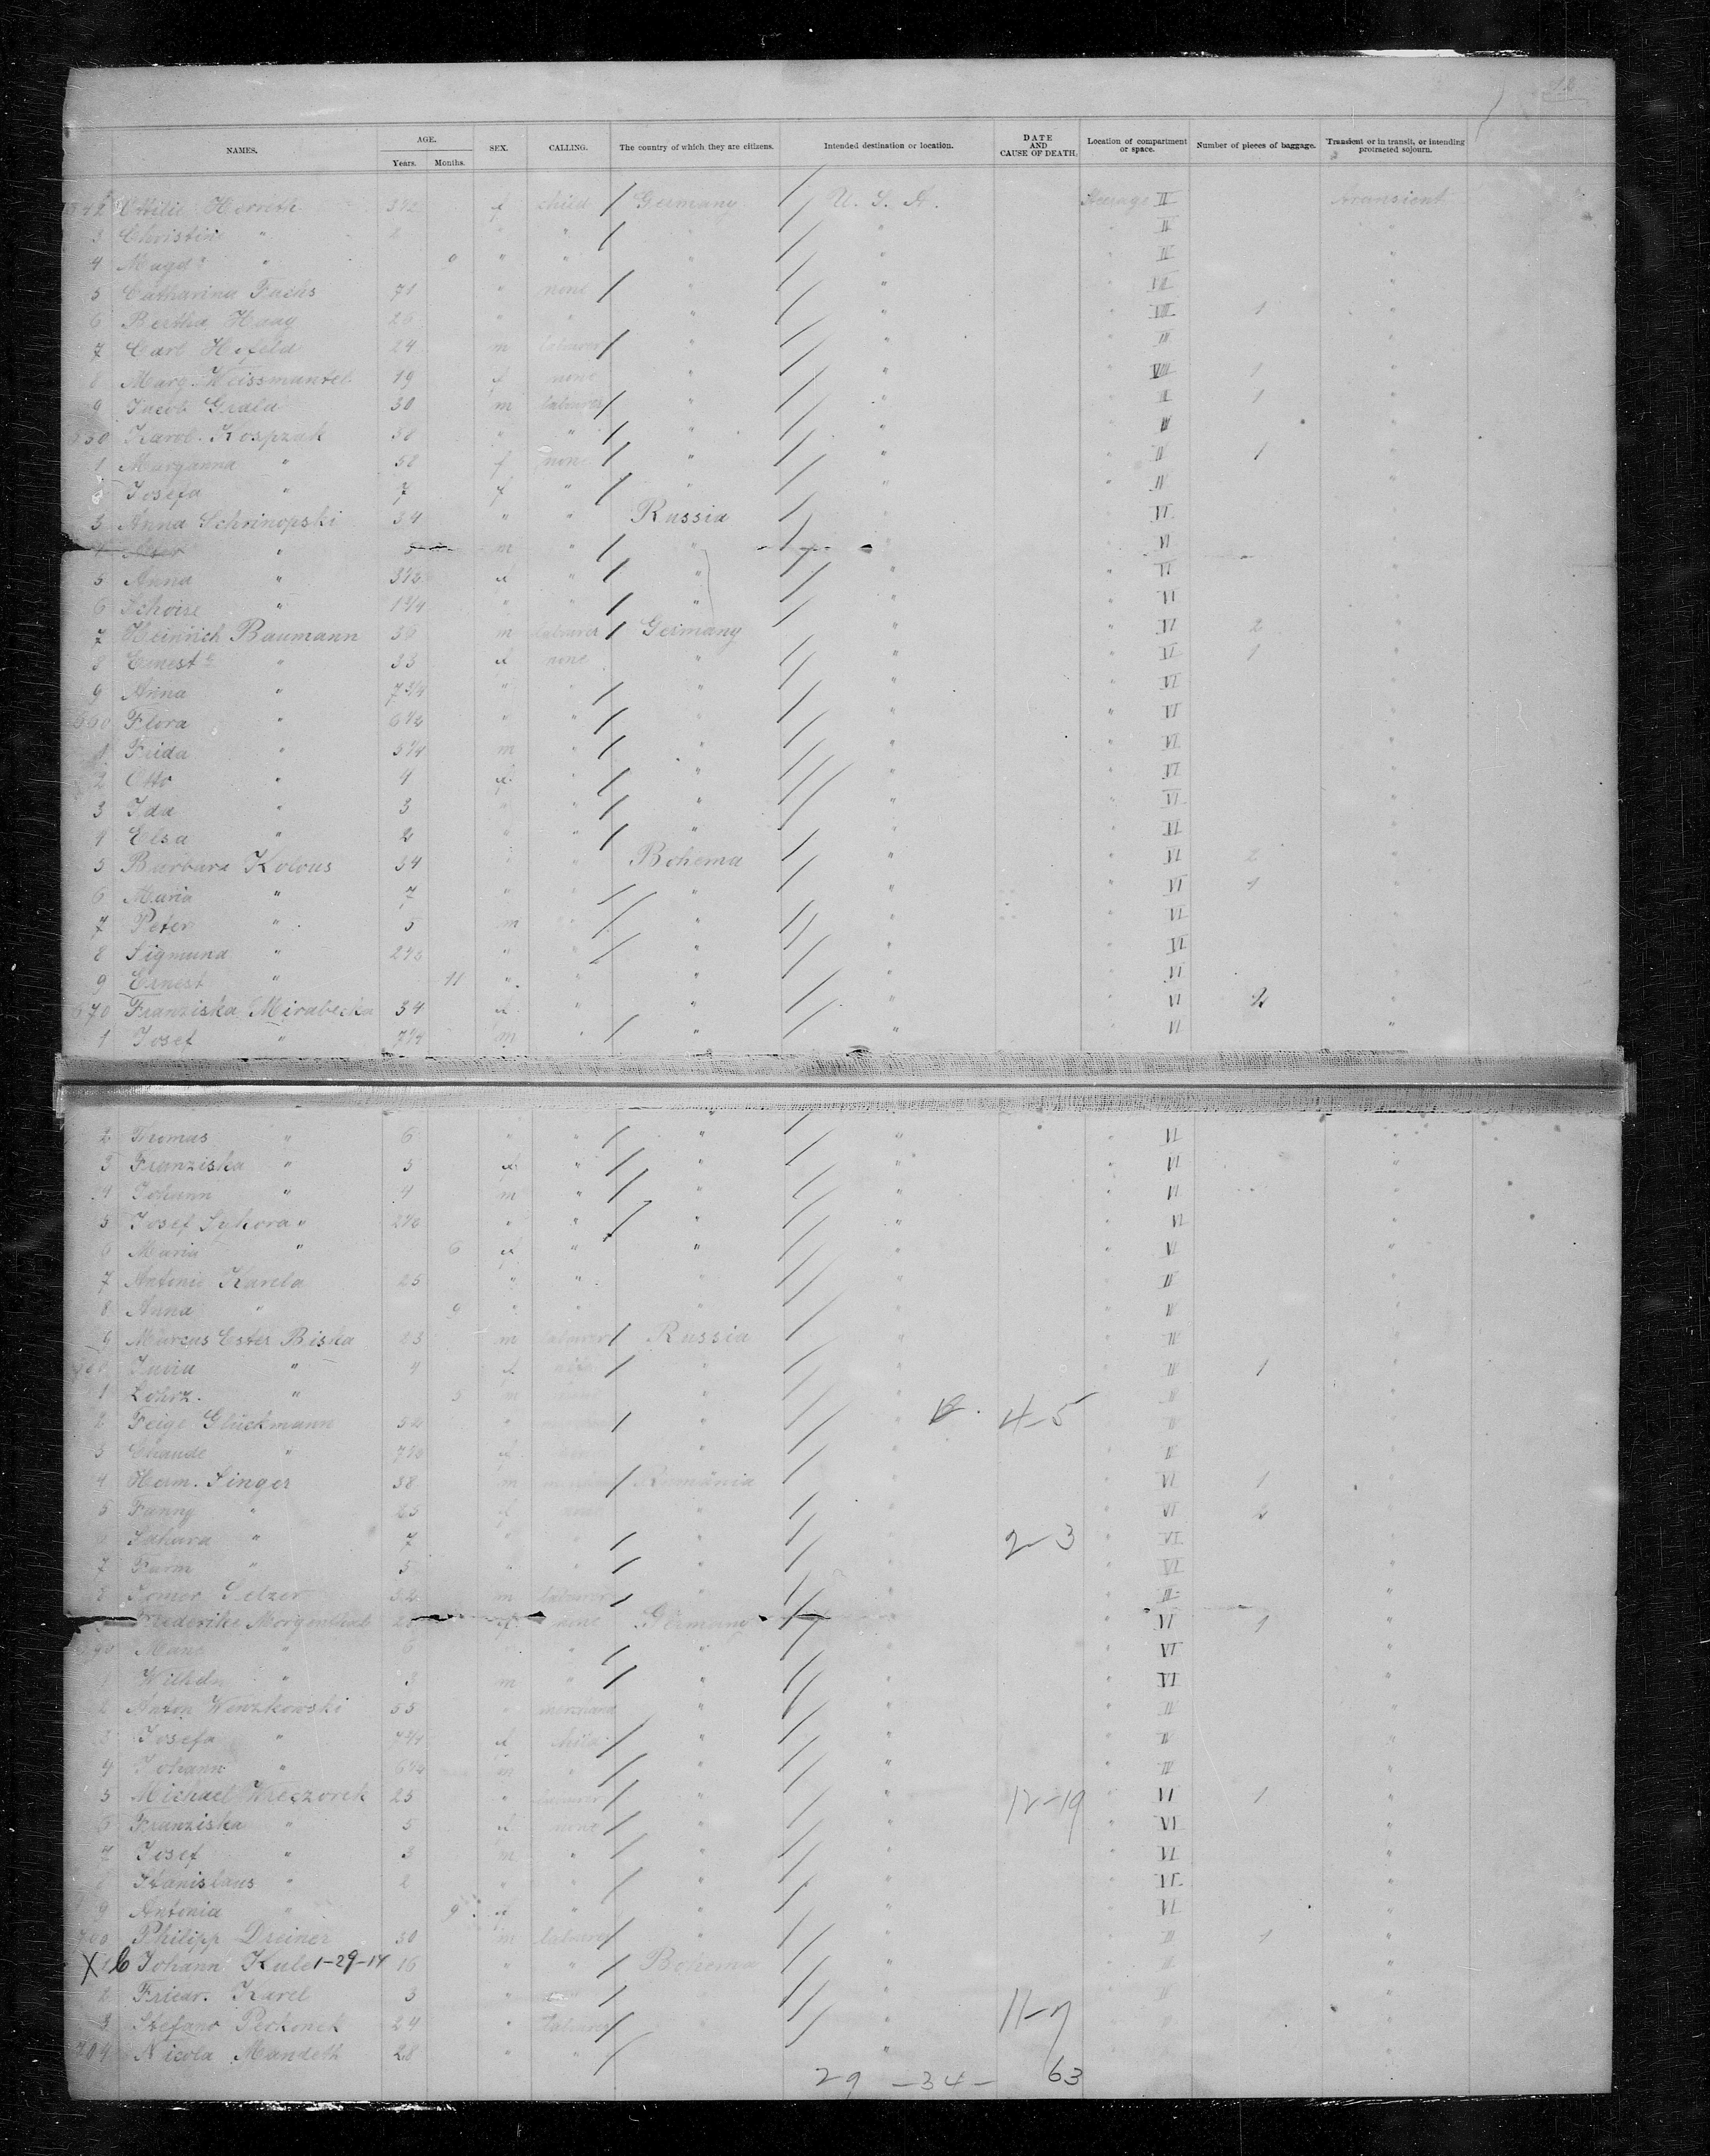 NAMES. AGE. Years. Months. SEX. CALLING. The country of which they are citizens. Intended destination or location. DATE AND CAUSE OF DEATH. Location of compartment or space. Number of pieces of baggage. Transient or in transit, or intending protracted sojourn.
Ottilie Horreth 3½ f child Germany U. S. A. Steerage II transient
3 Christin " 2 " " " " " II "
4 Magd " 9 " " " " " II "
5 Catharina Fuchs 71 " none " " " VIII "
6 Bertha Haag 26 " " " " " VIII 1 "
7 Carl Hofeld 24 m labourer " " " II "
8 Marg. Weissmantel 19 f none " " " VIII 1 "
9 Jacob Grald 30 m labourer " " " II 1 "
650 Karol. Kospzak 58 " " " " " II "
1 Maryanna " 58 f none " " " II 1 "
Josefa " 7 f " " " " II "
3 Anna Schrinopski 34 " " Russia " " VI "
4 " 5 m " " VI
5 Anna " 3½ f " " " " VI "
6 Schoise " 1¼ " " " " " VI "
7 Heinrich Baumann 36 m labourer Germany " " VI 2 "
8 Ernest " 33 f none " " " VI 1 "
9 Anna " 7¾ " " " " " VI "
660 Flora " 6½ " " " " " VI "
1 Frida " 5¼ m " " " " VI "
2 Otto " 4 f " " " " VI "
3 Ida " 3 " " " " " VI "
4 Elsa " 2 " " " " " VI "
5 Barbara Kolous 34 " " Bohema " " VI 2 "
6 Maria " 7 " " " " " VI 1 "
7 Peter " 5 m " " " " VI "
8 Sigmund " 2½ " " " " " VI "
9 Ernest " 11 " " " " " VI "
670 Franziska Mirabecka 34 f " " " " VI 2 "
1 Josef " 7½ m " " " " VI "
2 Tromas " 6 " " " " " VI "
3 Franziska " 5 f " " " " VI "
4 Johann " 4 m " " " " VI "
5 Josef Sykora " 2½ " " " " " VI "
6 Maria " 6 f " " " " VI "
7 Antonie Karela 25 " " " " " II "
8 Anna " 9 " " " " " II "
9 Marcus Ester Biska 23 m labourer Russia " " II "
" 4 f " " " II 1 "
1 " 5 m " " " II "
2 Feige Glückmann 52 " " " 4-5 II "
3 Chaude " 7½ f " " " II "
4 Herm. Singer 38 m Romänia " " VI 1 "
5 Fanny " 35 f none " " " VI 2 "
Sahara " 7 " " " " 2-3 " VI "
7 " 5 " " " " " VI "
8 Selzer 32 m labourer " " " II "
Frederike Morgenthal 28 f none Germany " VI 1 "
690 " 6 " " " " " VI "
Wilhelm " 3 m " " " " VI "
2 Anton Wenzkowski 55 " " " " II "
3 Josefa " 7¾ f child " " " II "
4 Johann " 6½ m " " " " II "
5 Michael Wieczorek 25 " labourer " " 12-19 " VI 1 "
6 Franziska " 5 f none " " " VI "
7 Josef " 3 m " " " " VI "
8 Stanislaus " 2 " " " " " VI "
9 Antonia " 9 f " " " " VI "
700 Philipp Dreiner 30 m labourer " " " II 1 "
X 1 C Johann Kule 1-29-14 16 " " Bohema " " II "
2 Friedr. Karel 3 " " " " II "
3 Stefano Perkonek 24 " labourer " 11-7 "
704 Nicola Mandeth 28 " " " "
29 -34- 63